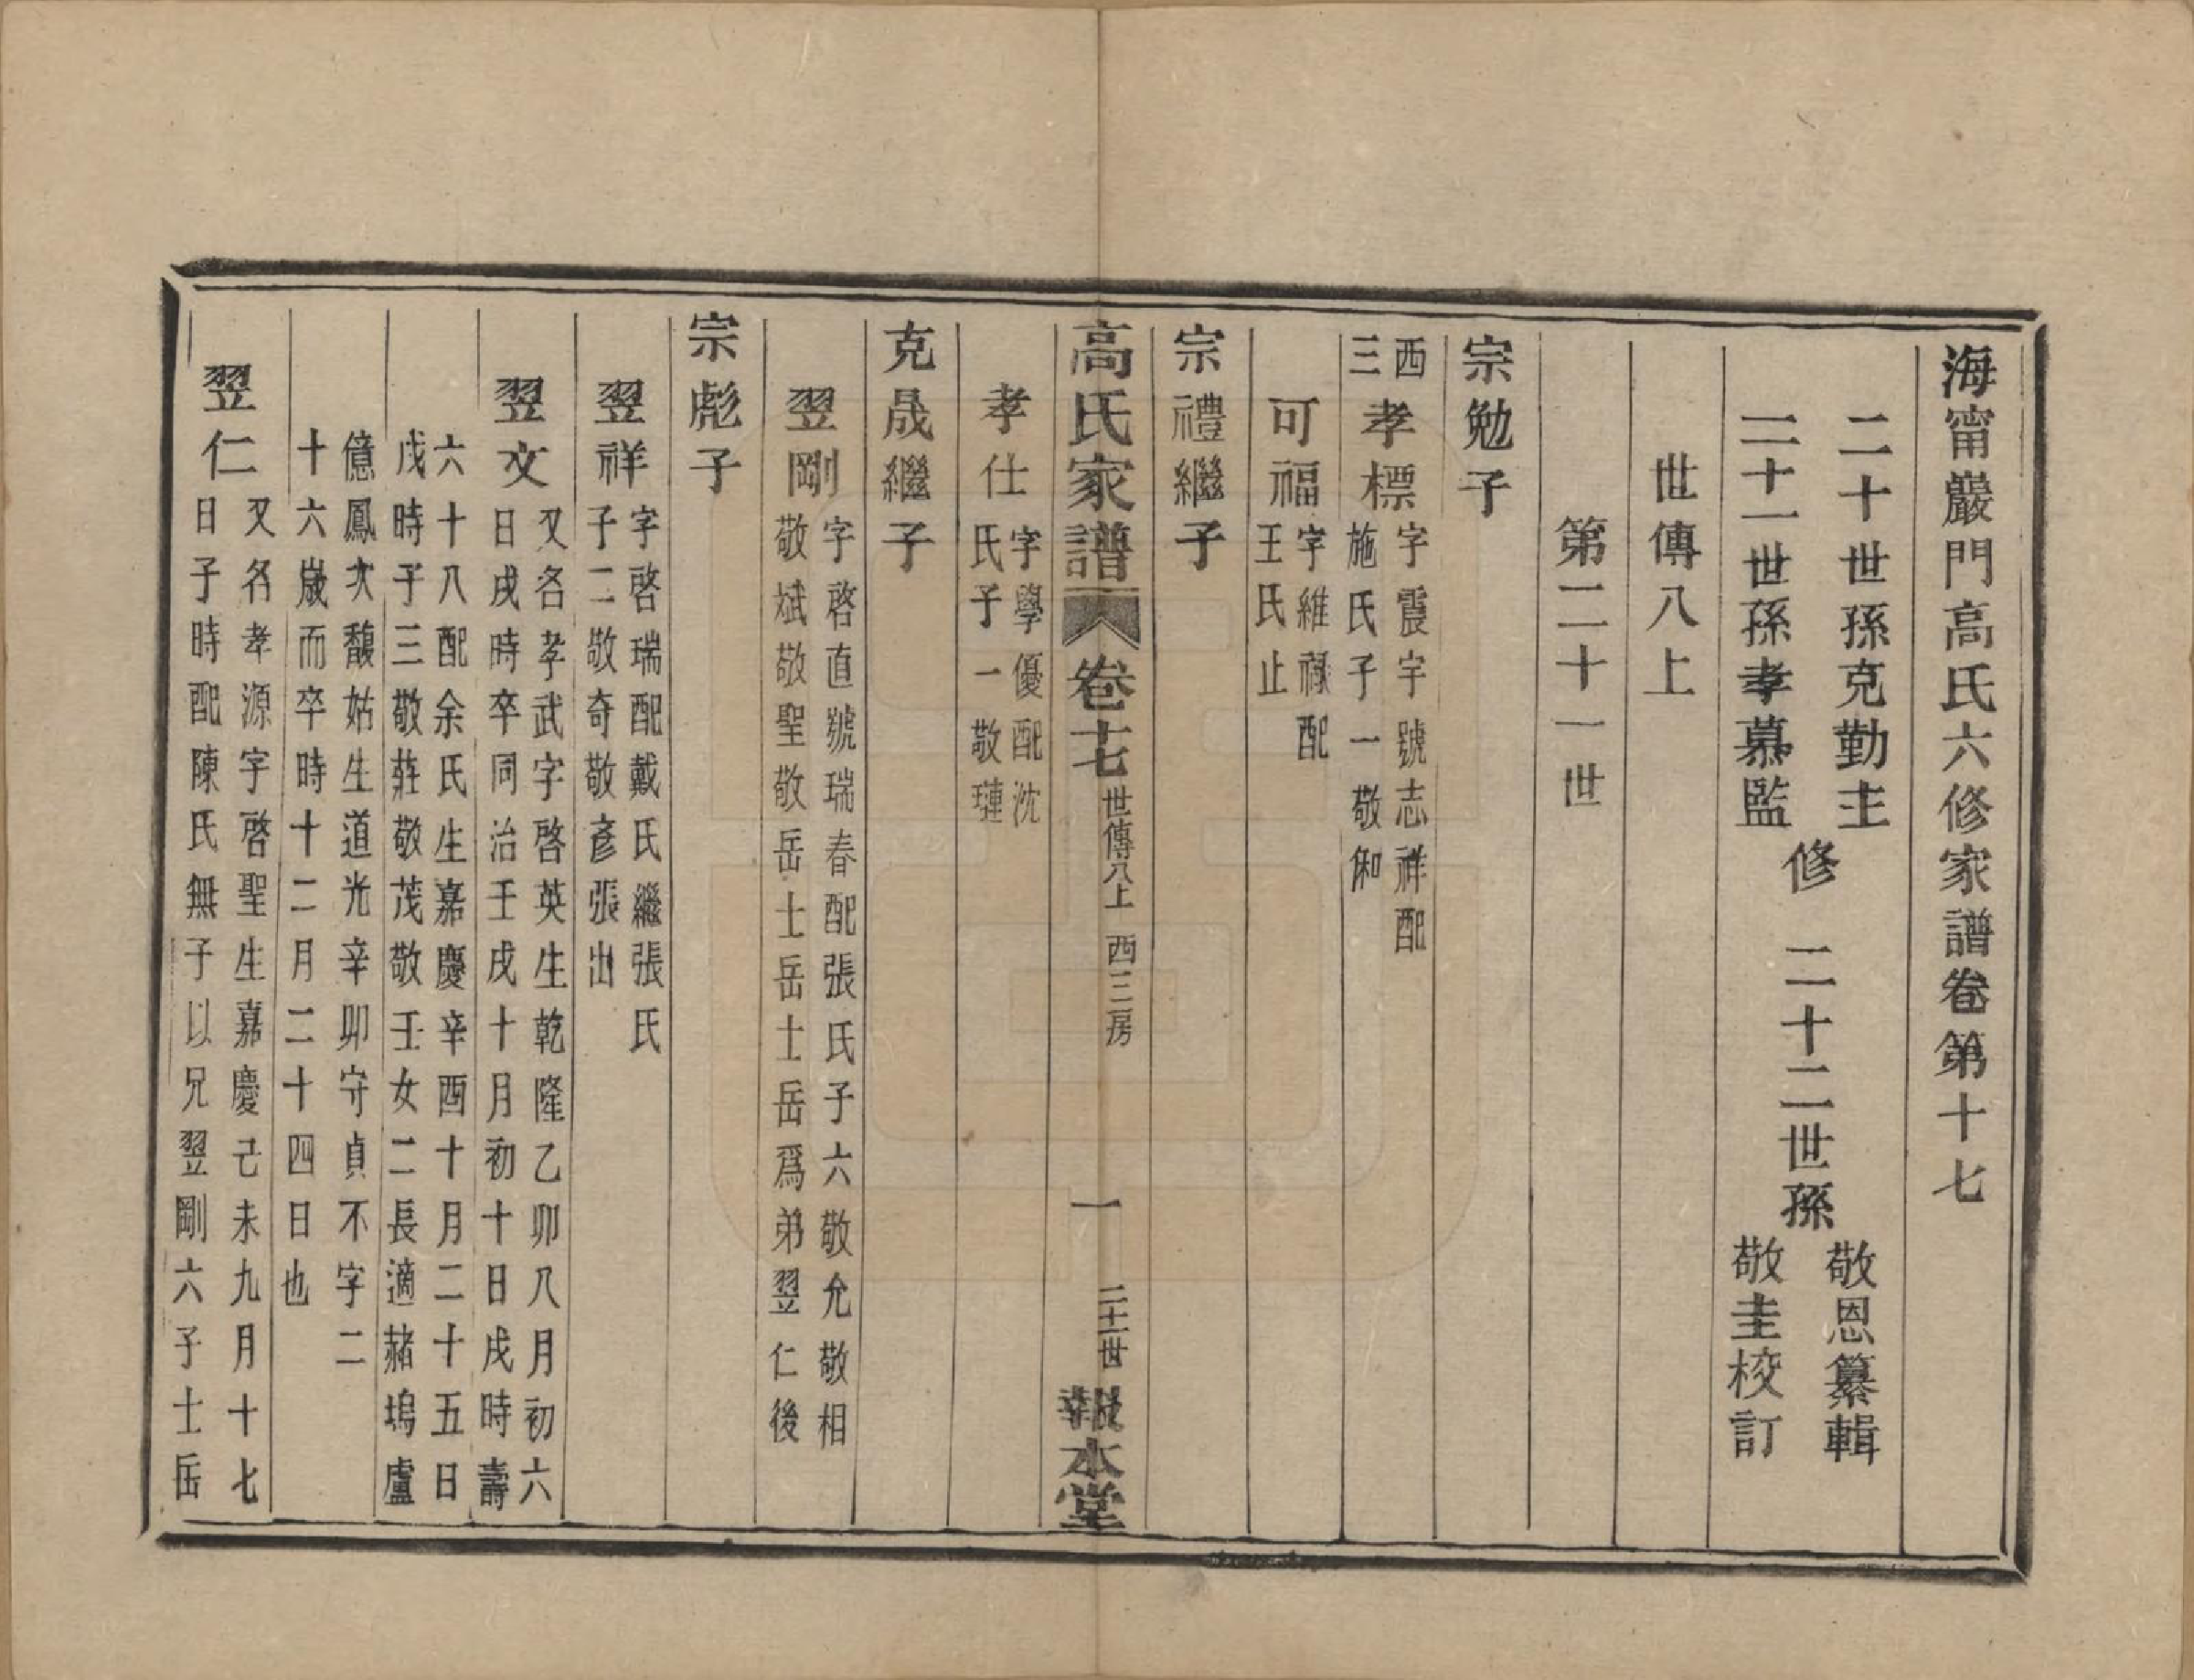 海甯巖門高氏六修家譜卷第十七
二十世孫克勤主
二十一世孫孝慕監
修
二十二世孫
敬恩纂輯
敬圭校訂
世傳八上
第二十一世
宗勉子
西三
孝標
字震宇號志祥配
施氏子一敬
可福
字維祿配
王氏止
宗禮繼子
高氏家譜
卷十七
世傳八上
西三房
一
二十一世
報本堂
孝仕
字學優配沈
氏子一敬璉
克晟繼子
翌剛
字啓直號瑞春配張氏子六敬允敬相
敬斌敬聖敬岳士岳士岳爲弟翌仁後
宗彪子
翌祥
字啓瑞配戴氏繼張氏
子二敬奇敬彥張出
翌文
又名孝武字啓英生乾隆乙卯八月初六
日戌時卒同治壬戌十月初十日戌時壽
六十八配余氏生嘉慶辛酉十月二十五日
戌時子三敬莊敬茂敬壬女二長適赭塢盧
億鳳次馥姑生道光辛卯守貞不字二
十六歲而卒時十二月二十四日也
翌仁
又名孝源字啓聖生嘉慶己未九月十七
日子時配陳氏無子以兄翌剛六子士岳